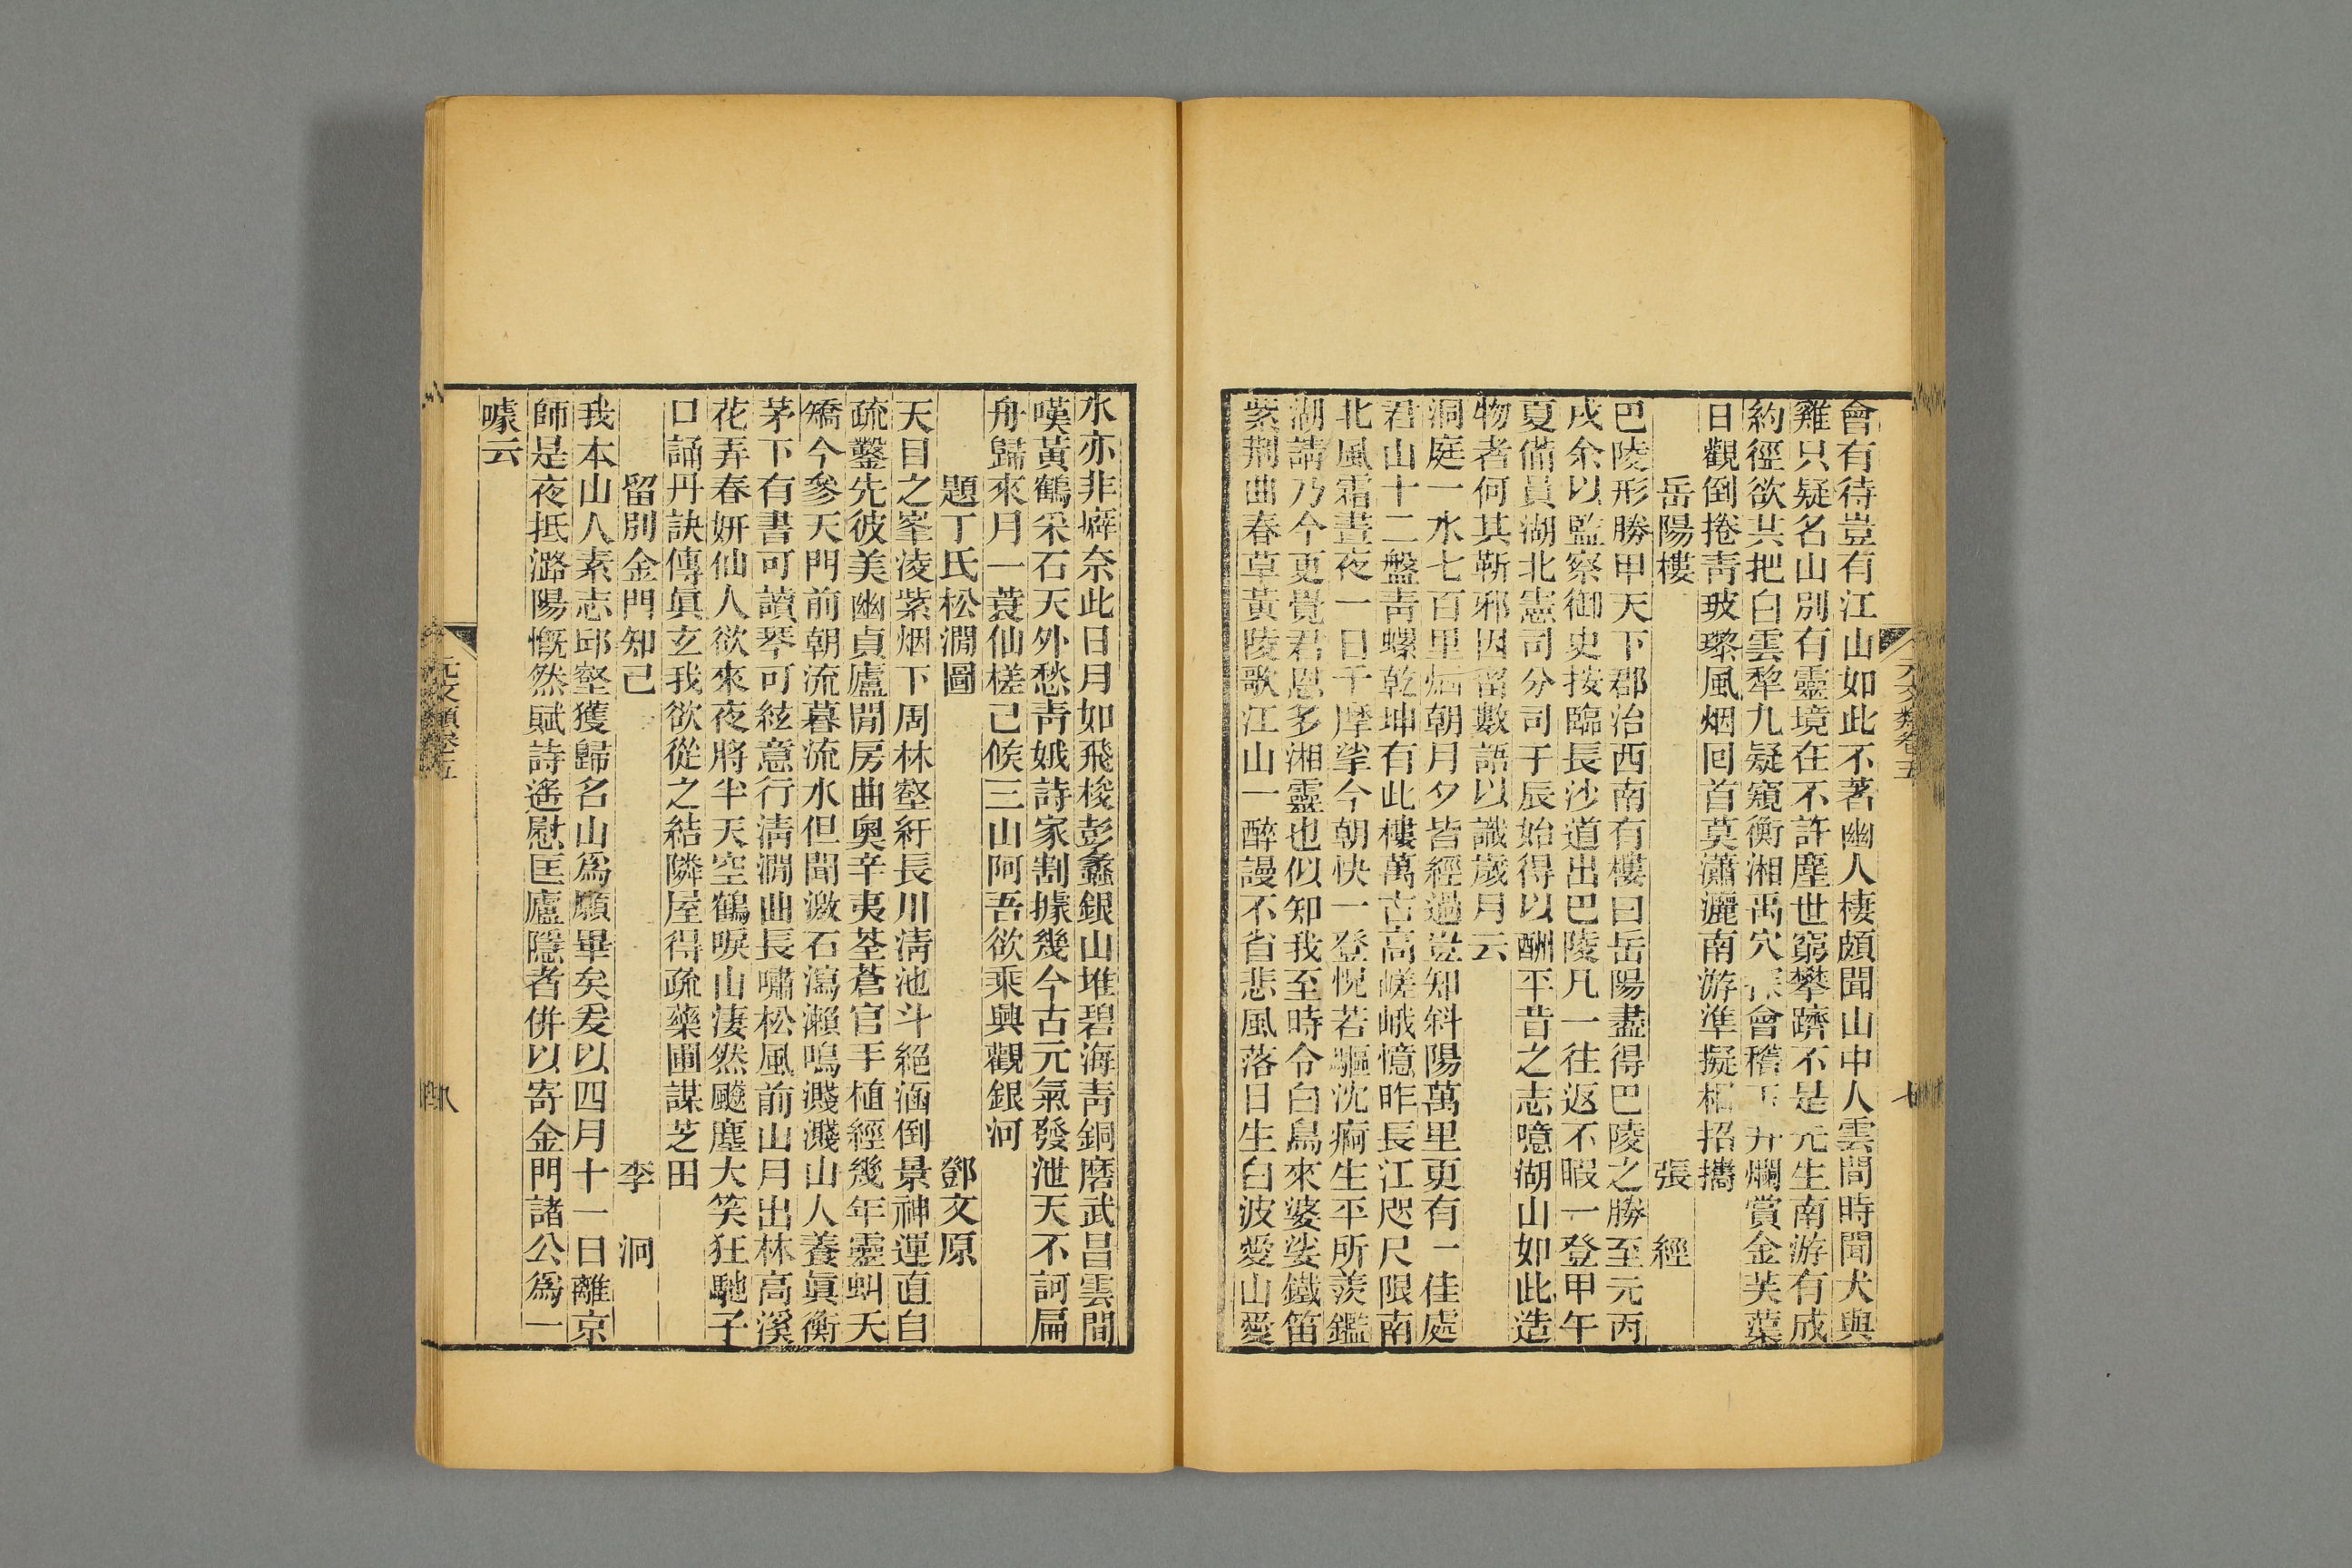 會有待豈有江山如此不著幽人棲頗聞山中人雲間時聞犬與
雞只疑名山別有靈境在不許塵世窮攀躋不是元生南游有成
約徑欲共把白雲犂九疑窺衡湘禹穴 會稽 爛賞金芙蕖
日觀倒捲靑玻瓈風烟回首莫瀟灑南游準擬相招攜
岳陽樓 張 經
巴陵形勝甲天下郡治西南有樓曰岳陽盡得巴陵之勝至元丙
戌余以監察御史按臨長沙道出巴陵凡一往返不暇一登甲午
夏備員湖北憲司分司于辰始得以酬平昔之志噫湖山如此造
物者何其靳邪因留數語以識歲月云
洞庭一水七百里烟朝月夕皆經過豈知斜陽萬里更有一佳處
君山十二盤靑螺乾坤有此樓萬古高嵯峨憶昨長江咫尺限南
北風霜晝夜一日千摩挲今朝快一登怳若驅沈痾生平所羨鑑
湖請乃今更覺君恩多湘靈也似知我至時令白鳥來婆娑鐵笛
紫荆曲春草黃陵歌江山一醉謾不省悲風落日生白波愛山愛
元文類卷五
七
水亦非癖奈此日月如飛梭彭蠡銀山堆碧海靑銅磨武昌雲間
嘆黃鶴采石天外愁靑娥詩家割據幾今古元氣發泄天不訶扁
舟歸來月一蓑仙槎已候三山阿吾欲乘興觀銀河
題丁氏松澗圖 鄧文原
天目之峯淩紫烟下周林壑紆長川淸池斗絕涵倒景神運直自
疏鑿先彼美幽貞廬閒房曲奧辛夷荃蒼官手植經幾年靈虯夭
矯今參天門前朝流暮流水但聞激石瀉瀨鳴濺濺山人養眞衡
茅下有書可讀琴可絃意行淸澗曲長嘯松風前山月出林高溪
花弄春姸仙人欲來夜將半天空鶴唳山淒然飈塵大笑狂馳子
口誦丹訣傳眞玄我欲從之結隣屋得疏藥圃謀芝田
留別金門知己 李 洞
我本山人素志邱壑獲歸名山爲願畢矣爰以四月十一日離京
師是夜抵潞陽慨然賦詩遙慰匡廬隱者併以寄金門諸公爲一
噱云
元文類卷五
八